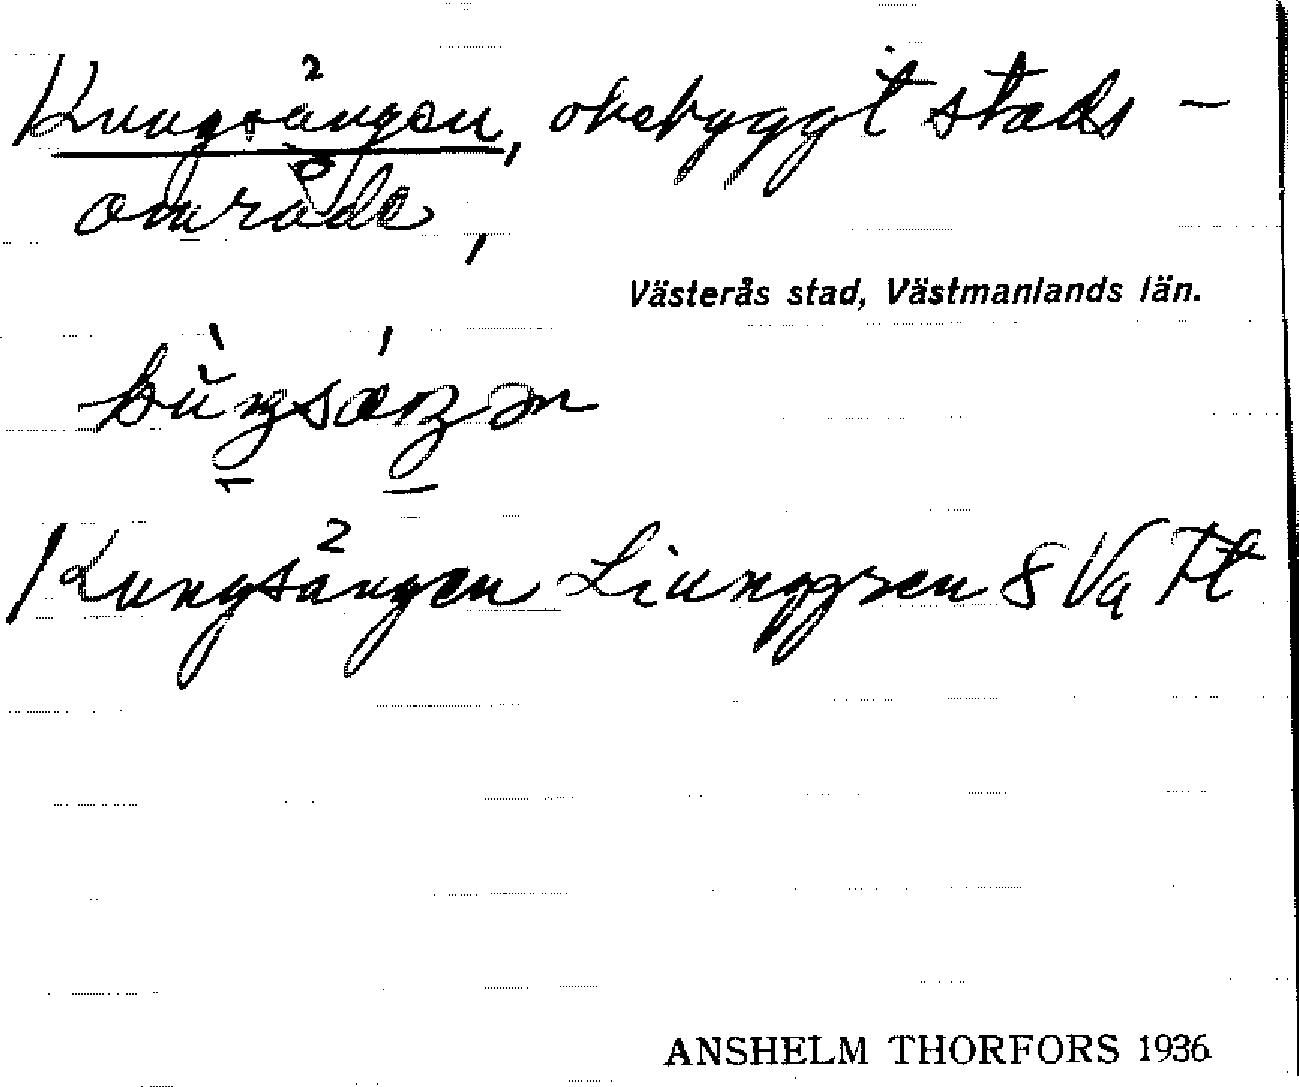 Kungsängen, obebyggt stads-
område,
Västerås stad, Västmanlands län.
Kungsängen Ljunggren 8 Va
ANSHELM THORFORS 1936